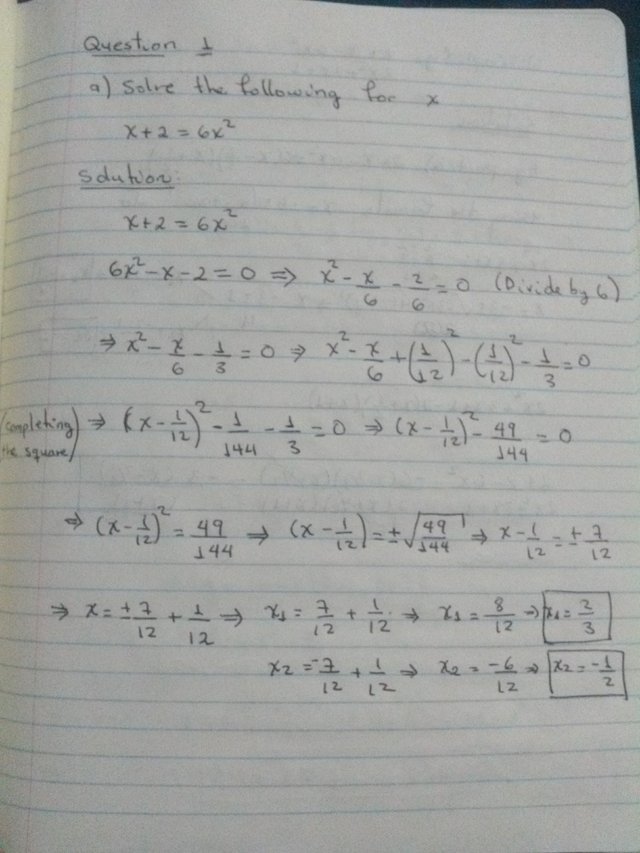 Question 1
a) Solve the following for x
x+2 = 6x²
Solution:
x+2 = 6x²
6x²-x-2=0 ⇒ x² - x/6 - 2/6 = 0 (Divide by 6)
⇒ x² - x/6 - 1/3 = 0 ⇒ x² - x/6 + (1/12)² - (1/12)² - 1/3 = 0
(completing the square) ⇒ (x - 1/12)² - 1/144 - 1/3 = 0 ⇒ (x - 1/12)² - 49/144 = 0
⇒ (x - 1/12)² = 49/144 ⇒ (x - 1/12) = ±√(49/144) ⇒ x - 1/12 = ± 7/12
⇒ x = ±7/12 + 1/12 ⇒ x₁ = 7/12 + 1/12 ⇒ x₁ = 8/12 ⇒ x₁ = 2/3
x₂ = -7/12 + 1/12 ⇒ x₂ = -6/12 ⇒ x₂ = -1/2